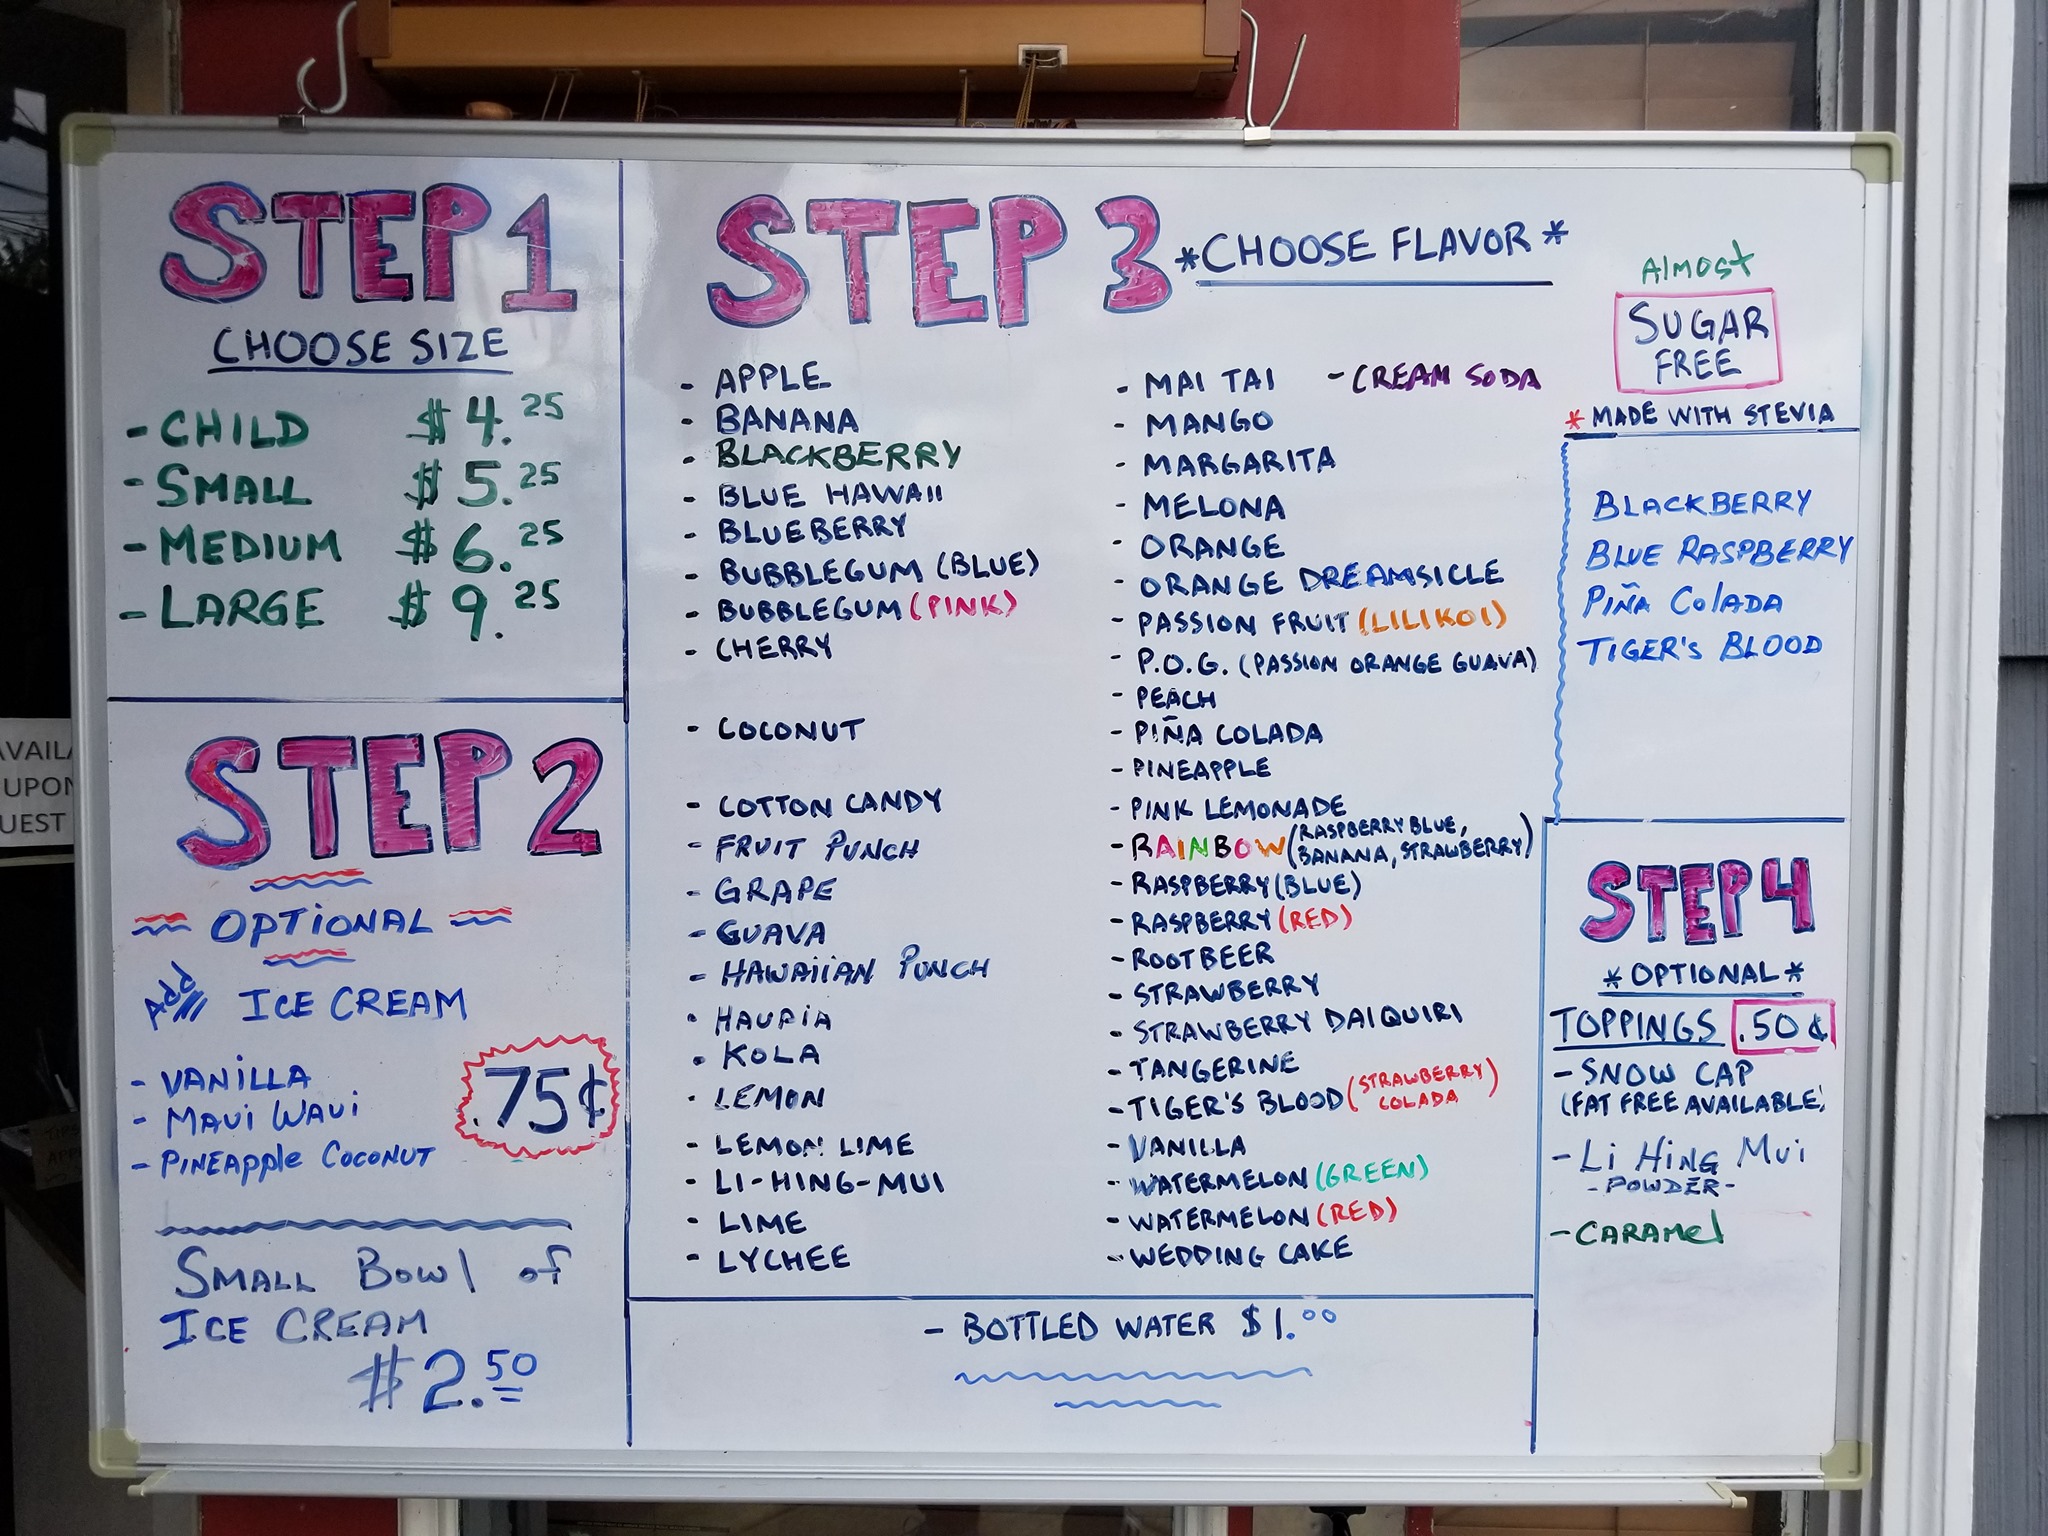 STEP 1
CHOOSE SIZE
- CHILD $4.25
- SMALL $5.25
- MEDIUM $6.25
- LARGE $9.25
STEP 2
OPTIONAL
Add ICE CREAM
- VANILLA
- MAUI WAUI
- PINEApple COCONUT
.75¢
SMALL BOWl of
ICE CREAM
$2.50
STEP 3 *CHOOSE FLAVOR*
- APPLE
- BANANA
- BLACKBERRY
- BLUE HAWAII
- BLUEBERRY
- BUBBLEGUM (BLUE)
- BUBBLEGUM (PINK)
- CHERRY
- COCONUT
- COTTON CANDY
- FRUIT PUNCH
- GRAPE
- GUAVA
- HAWAIIAN PUNCH
- HAUPIA
- KOLA
- LEMON
- LEMON LIME
- LI-HING-MUI
- LIME
- LYCHEE
- MAI TAI - CREAM SODA
- MANGO
- MARGARITA
- MELONA
- ORANGE
- ORANGE DREAMSICLE
- PASSION FRUIT (LILIKOI)
- P.O.G. (PASSION ORANGE GUAVA)
- PEACH
- PIÑA COLADA
- PINEAPPLE
- PINK LEMONADE
- RAINBOW (RASPBERRY BLUE,
BANANA, STRAWBERRY)
- RASPBERRY (BLUE)
- RASPBERRY (RED)
- ROOTBEER
- STRAWBERRY
- STRAWBERRY DAIQUIRI
- TANGERINE
- TIGER'S BLOOD (STRAWBERRY
COLADA)
- VANILLA
- WATERMELON (GREEN)
- WATERMELON (RED)
- WEDDING CAKE
- BOTTLED WATER $1.00
AlMOST
SUGAR
FREE
* MADE WITH STEVIA
BLACKBERRY
BLUE RASPBERRY
PIÑA ColADA
TIGER'S BLOOD
STEP 4
* OPTIONAL *
TOPPINGS .50¢
- SNOW CAP
(FAT FREE AVAILABLE)
- Li HING MUi
- POWDER -
- CARAMEl
UPON
UEST